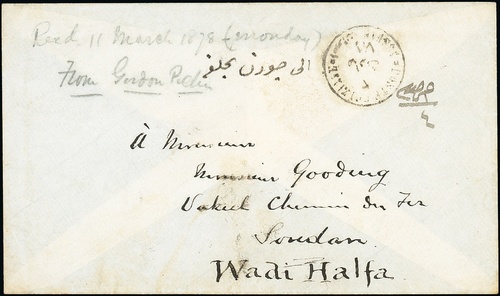 Recd. 11 March 1878 (monday)
From Gordon Pasha
الى جودن بحلفه
À Monsieur
Monsieur Gooding
Vakeel Chemin du Fer
Soudan.
Wadi Halfa